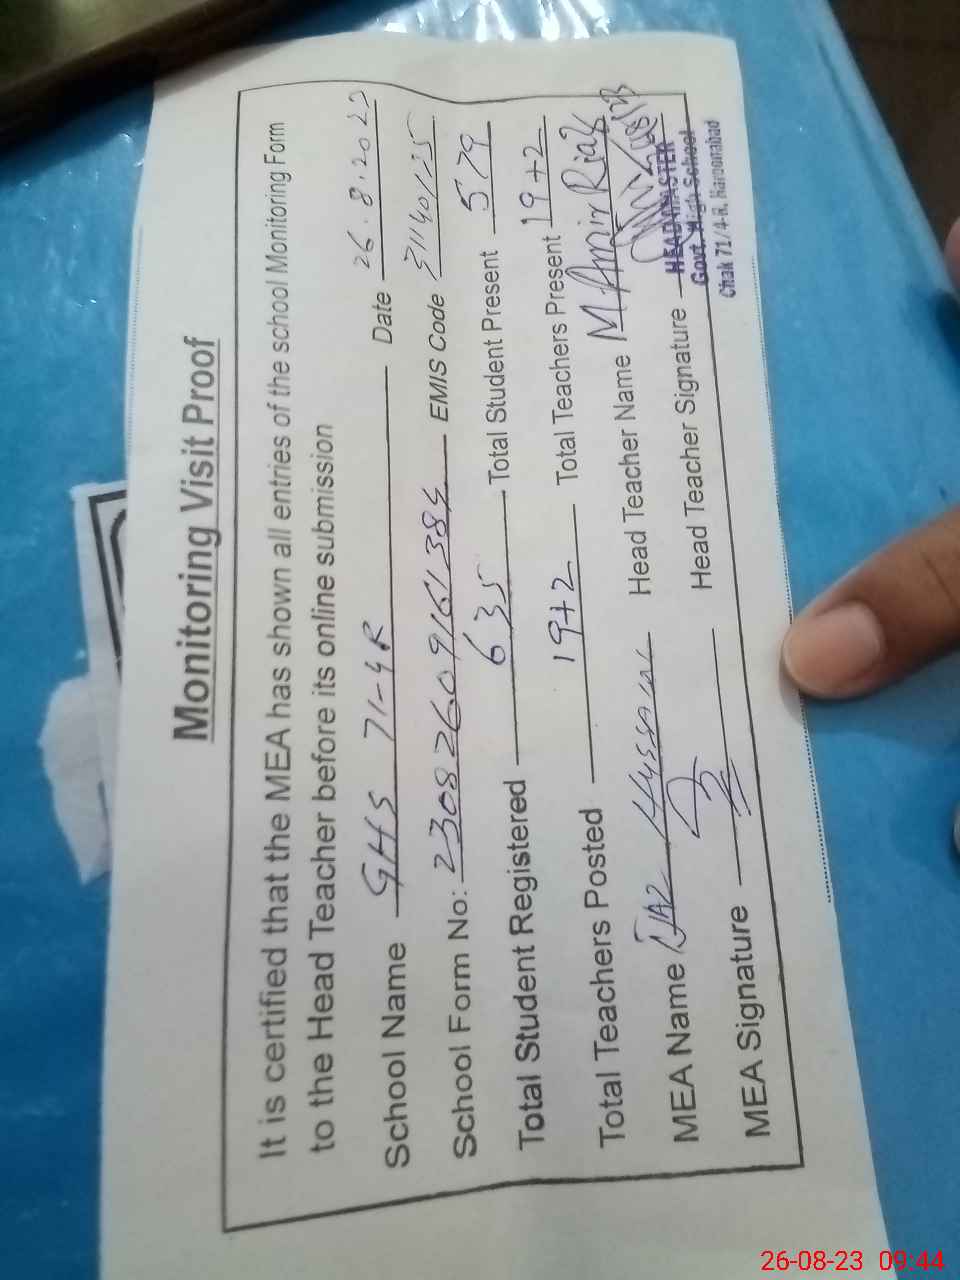 Monitoring Visit Proof
It is certified that the MEA has shown all entries of the school Monitoring Form
to the Head Teacher before its online submission
School Name GHS 71-4R Date 26.8.2023
School Form No: 23082609161384 EMIS Code 31140125
Total Student Registered 635 Total Student Present 579
Total Teachers Posted 19+2 Total Teachers Present 19+2
MEA Name Ijaz Hussain Head Teacher Name M Amir Riaz
MEA Signature Head Teacher Signature
HEADMASTER
Govt. High School
Chak 71/4-R, Haroonabad
26-08-23 09:44